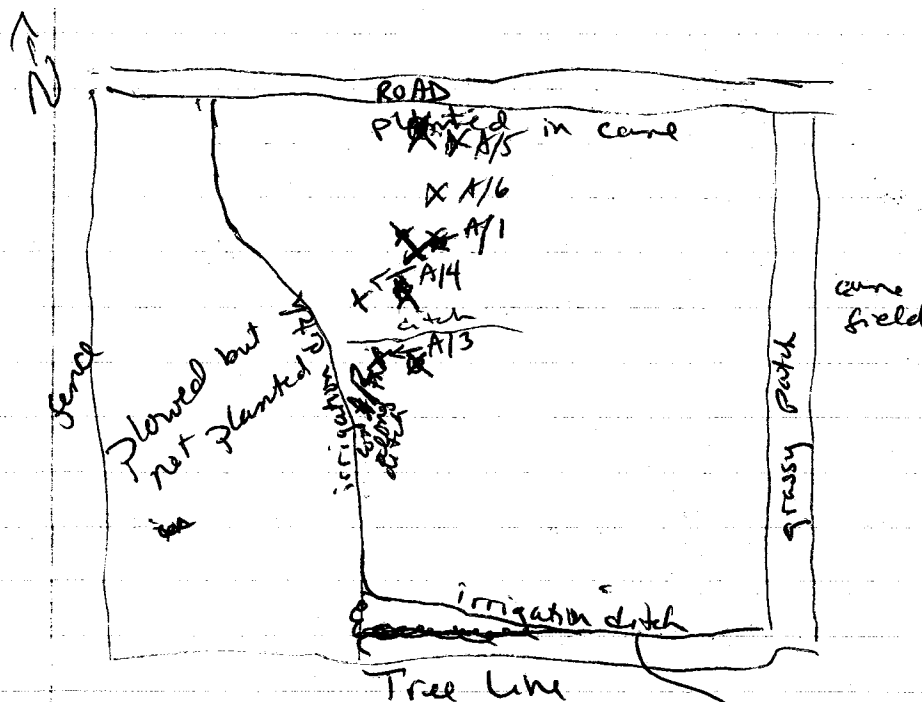 N
ROAD
planted in cane
A/5
A/6
A/1
A/4
ditch
A/3
cane
field
fence
Plowed but
not planted
irrigation ditch
along
ditch
grassy patch
irrigation ditch
Tree Line